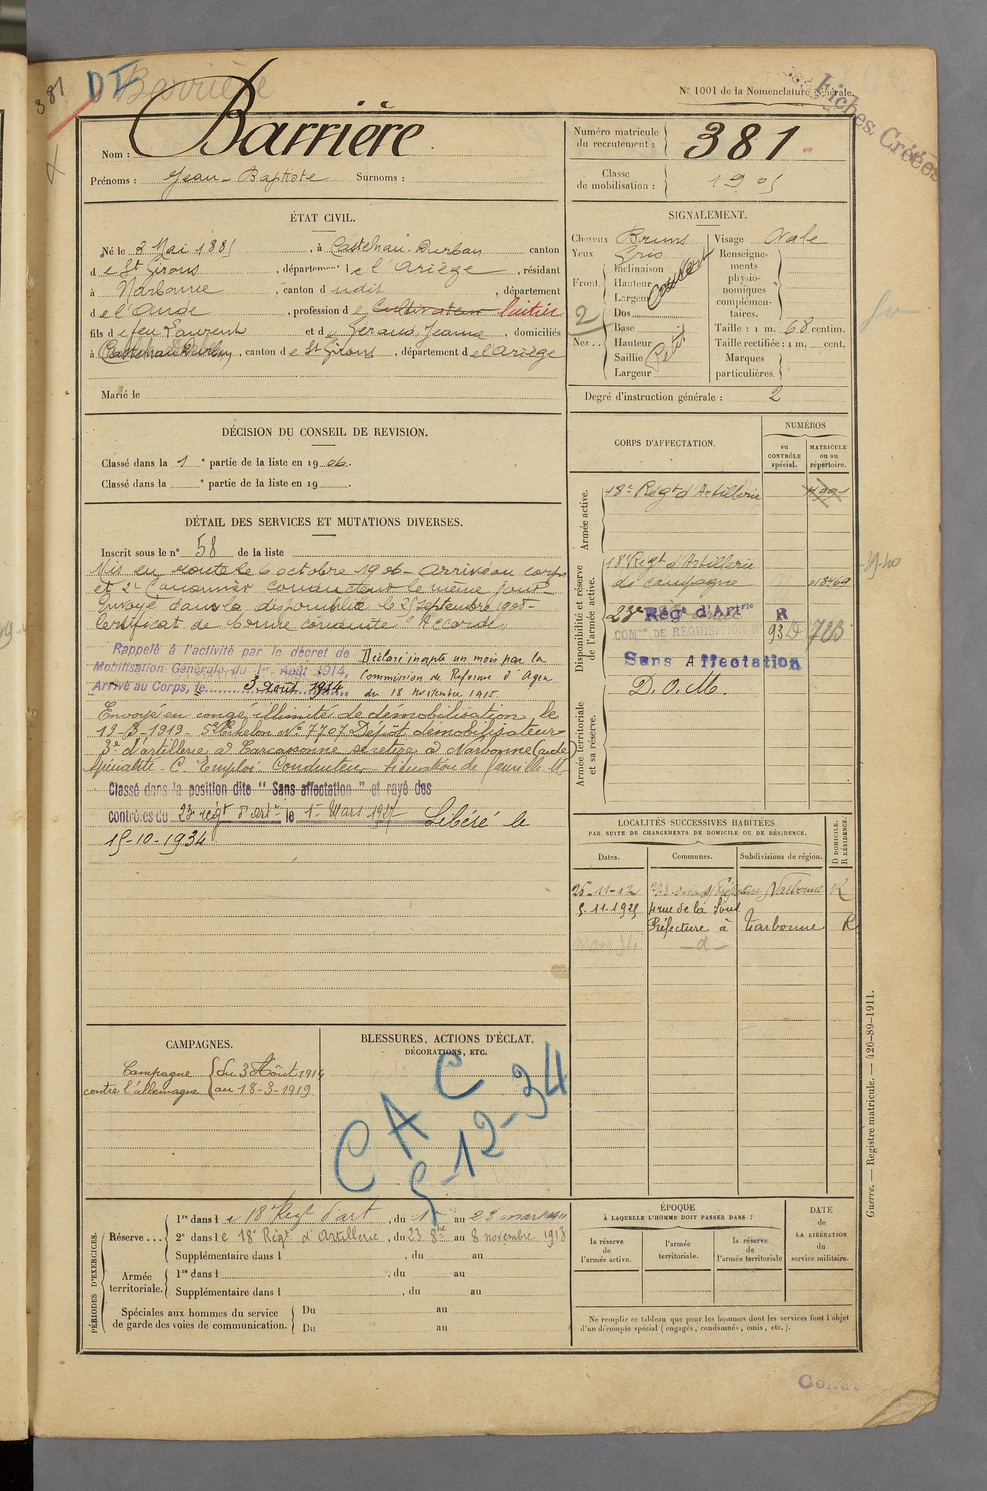 381
DI
Barrière
N° 1001 de la Nomenclature générale.
Fiches Créées
Nom : Barrière
Prénoms : Jean-Baptiste Surnoms :
Numéro matricule du recrutement : 381
Classe de mobilisation : 1905
ÉTAT CIVIL.
Né le 3 Mai 1885, à Castelnau-Durban canton
de St Girons, département de l'Ariège, résidant
à Narbonne, canton dudit, département
de l'Aude, profession de Cultivateur laitier
fils de feu Laurent et de Géraud Jeanne, domiciliés
à Castelnau Durban, canton de St Girons, département de l'Ariège
Marié le
SIGNALEMENT.
Cheveux Bruns
Yeux Gris
Front. Inclinaison
Hauteur
Largeur
couvert
2
Nez... Dos
Base
Hauteur
Saillie
Largeur
Petit
Visage Ovale
Renseignements physionomiques complémentaires.
Taille : 1 m. 68 centim.
Taille rectifiée : 1 m. cent.
Marques particulières.
Degré d'instruction générale : 2
DÉCISION DU CONSEIL DE REVISION.
Classé dans la 1e partie de la liste en 1906.
Classé dans la e partie de la liste en 19 .
DÉTAIL DES SERVICES ET MUTATIONS DIVERSES.
Inscrit sous le n° 58 de la liste
Mis en route le 6 octobre 1906 - Arrivé au corps
et 2e Canonnier conducteur le même jour -
Envoyé dans la disponibilité le 25 septembre 1908 -
Certificat de bonne conduite "Accordé"
Rappelé à l'activité par le décret de
Mobilisation Générale du 1er Août 1914,
Arrivé au Corps, le 3 août 1914
Déclaré inapte un mois par la
Commission de Réforme d'Agen
du 18 novembre 1915
Envoyé en congé illimité de démobilisation le
19-3-1919 5e Echelon N° 7707 Dépôt démobilisateur
3e d'artillerie à Carcassonne se retire à Narbonne (Aude)
Spécialité C. Emploi Conducteur situation de famille M
Classé dans la position dite "Sans affectation" et rayé des
contrôles du 23e régt d'artie le 1er Mars 1927 Libéré le
15-10-1934
CORPS D'AFFECTATION.
NUMÉROS
au CONTRÔLE spécial.
MATRICULE ou au répertoire.
Armée active.
18e Régt d'Artillerie
Disponibilité et réserve de l'armée active.
18e Régt d'Artillerie
de campagne 018469
23e Régt d'Artrie R
COM DE RÉQUISITION N° 93 D 725
Sans Affectation
D.O.M.
Armée territoriale et sa réserve.
39-40
LOCALITÉS SUCCESSIVES HABITÉES
PAR SUITE DE CHANGEMENTS DE DOMICILE OU DE RÉSIDENCE.
Dates. Communes. Subdivisions de région. D DOMICILE. R RÉSIDENCE.
26-11-12 Narbonne R
5.11.1925 4 rue de la Sous
Préfecture à Narbonne R
mars 34 -d-
CAMPAGNES.
Campagne du 3 Août 1914
contre l'allemagne au 18-3-1919
BLESSURES, ACTIONS D'ÉCLAT,
DÉCORATIONS, ETC.
C A C
5-12-34
PÉRIODES D'EXERCICES.
Réserve... 1re dans le 18e Régt d'art, du 1er au 23 mars 1911
2e dans le 18e Régt d'Artillerie, du 23 8bre au 8 novembre 1913
Supplémentaire dans l , du au
Armée territoriale. 1re dans l , du au
Supplémentaire dans l , du au
Spéciales aux hommes du service de garde des voies de communication. Du au
Du au
ÉPOQUE
À LAQUELLE L'HOMME DOIT PASSER DANS :
la réserve de l'armée active.
l'armée territoriale.
la réserve de l'armée territoriale
DATE de LA LIBÉRATION du service militaire.
Ne remplir ce tableau que pour les hommes dont les services font l'objet
d'un décompte spécial (engagés, condamnés, omis, etc.).
Guerre. — Registre matricule. — 426-89-1911.